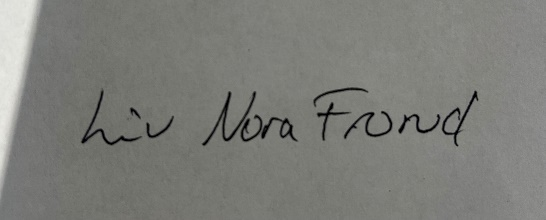 Liv Nora Frond